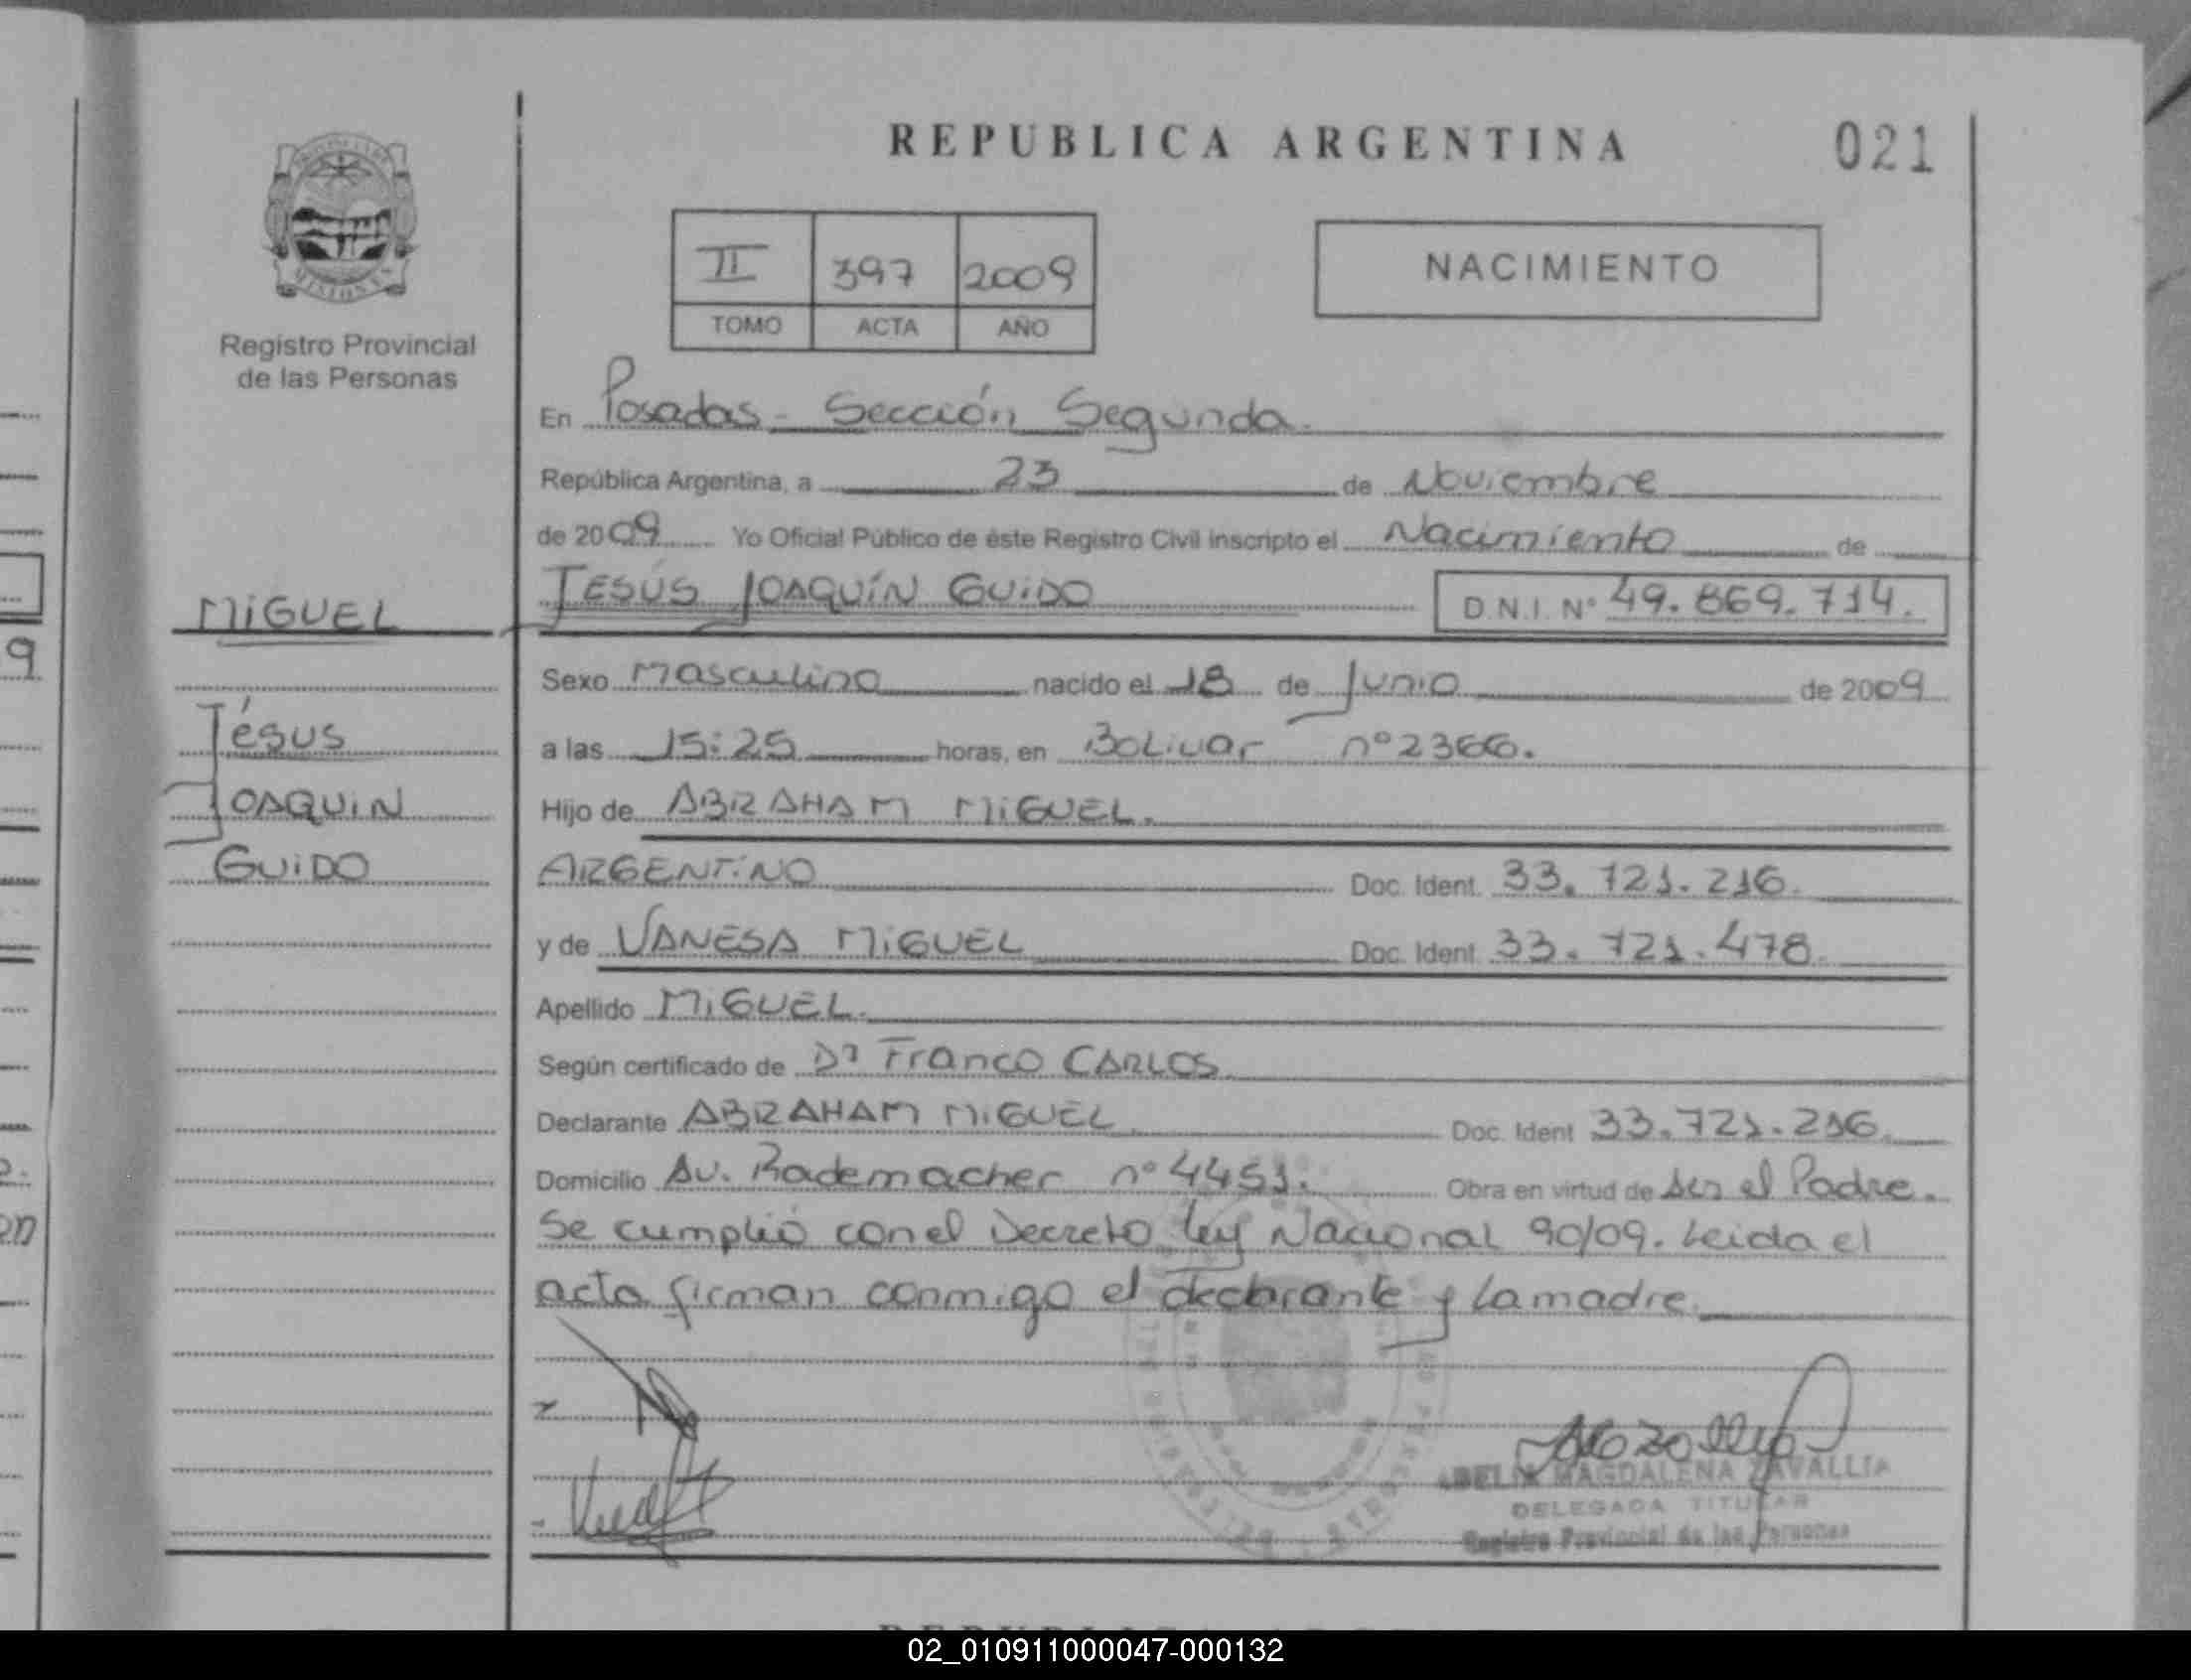 REPUBLICA ARGENTINA
021
II 397 2009
TOMO ACTA AÑO
NACIMIENTO
MISIONES
Registro Provincial
de las Personas
MIGUEL
Jésus
JOAQUIN
GUIDO
En Posadas - Sección Segunda.
República Argentina, a 23 de Noviembre
de 2009 Yo Oficial Público de éste Registro Civil inscripto el Nacimiento de
JESÚS JOAQUÍN GUIDO D.N.I. N° 49.869.714.
Sexo Masculino nacido el 18 de Junio de 2009
a las 15:25 horas, en Bolivar n° 2366.
Hijo de ABRAHAM MIGUEL.
ARGENTINO Doc. Ident. 33.721.216.
y de VANESA MIGUEL Doc. Ident. 33.721.478.
Apellido MIGUEL.
Según certificado de Dr Franco CARLOS.
Declarante ABRAHAM MIGUEL. Doc. Ident 33.721.216.
Domicilio Av. Rademacher n° 4451. Obra en virtud de ser el Padre.
Se cumplió con el Decreto Ley Nacional 90/09. Leida el
acta firman conmigo el declarante y la madre.
MAGDALENA ZAVALLIA
DELEGADA TITULAR
Registro Provincial de las Personas
02_010911000047-000132